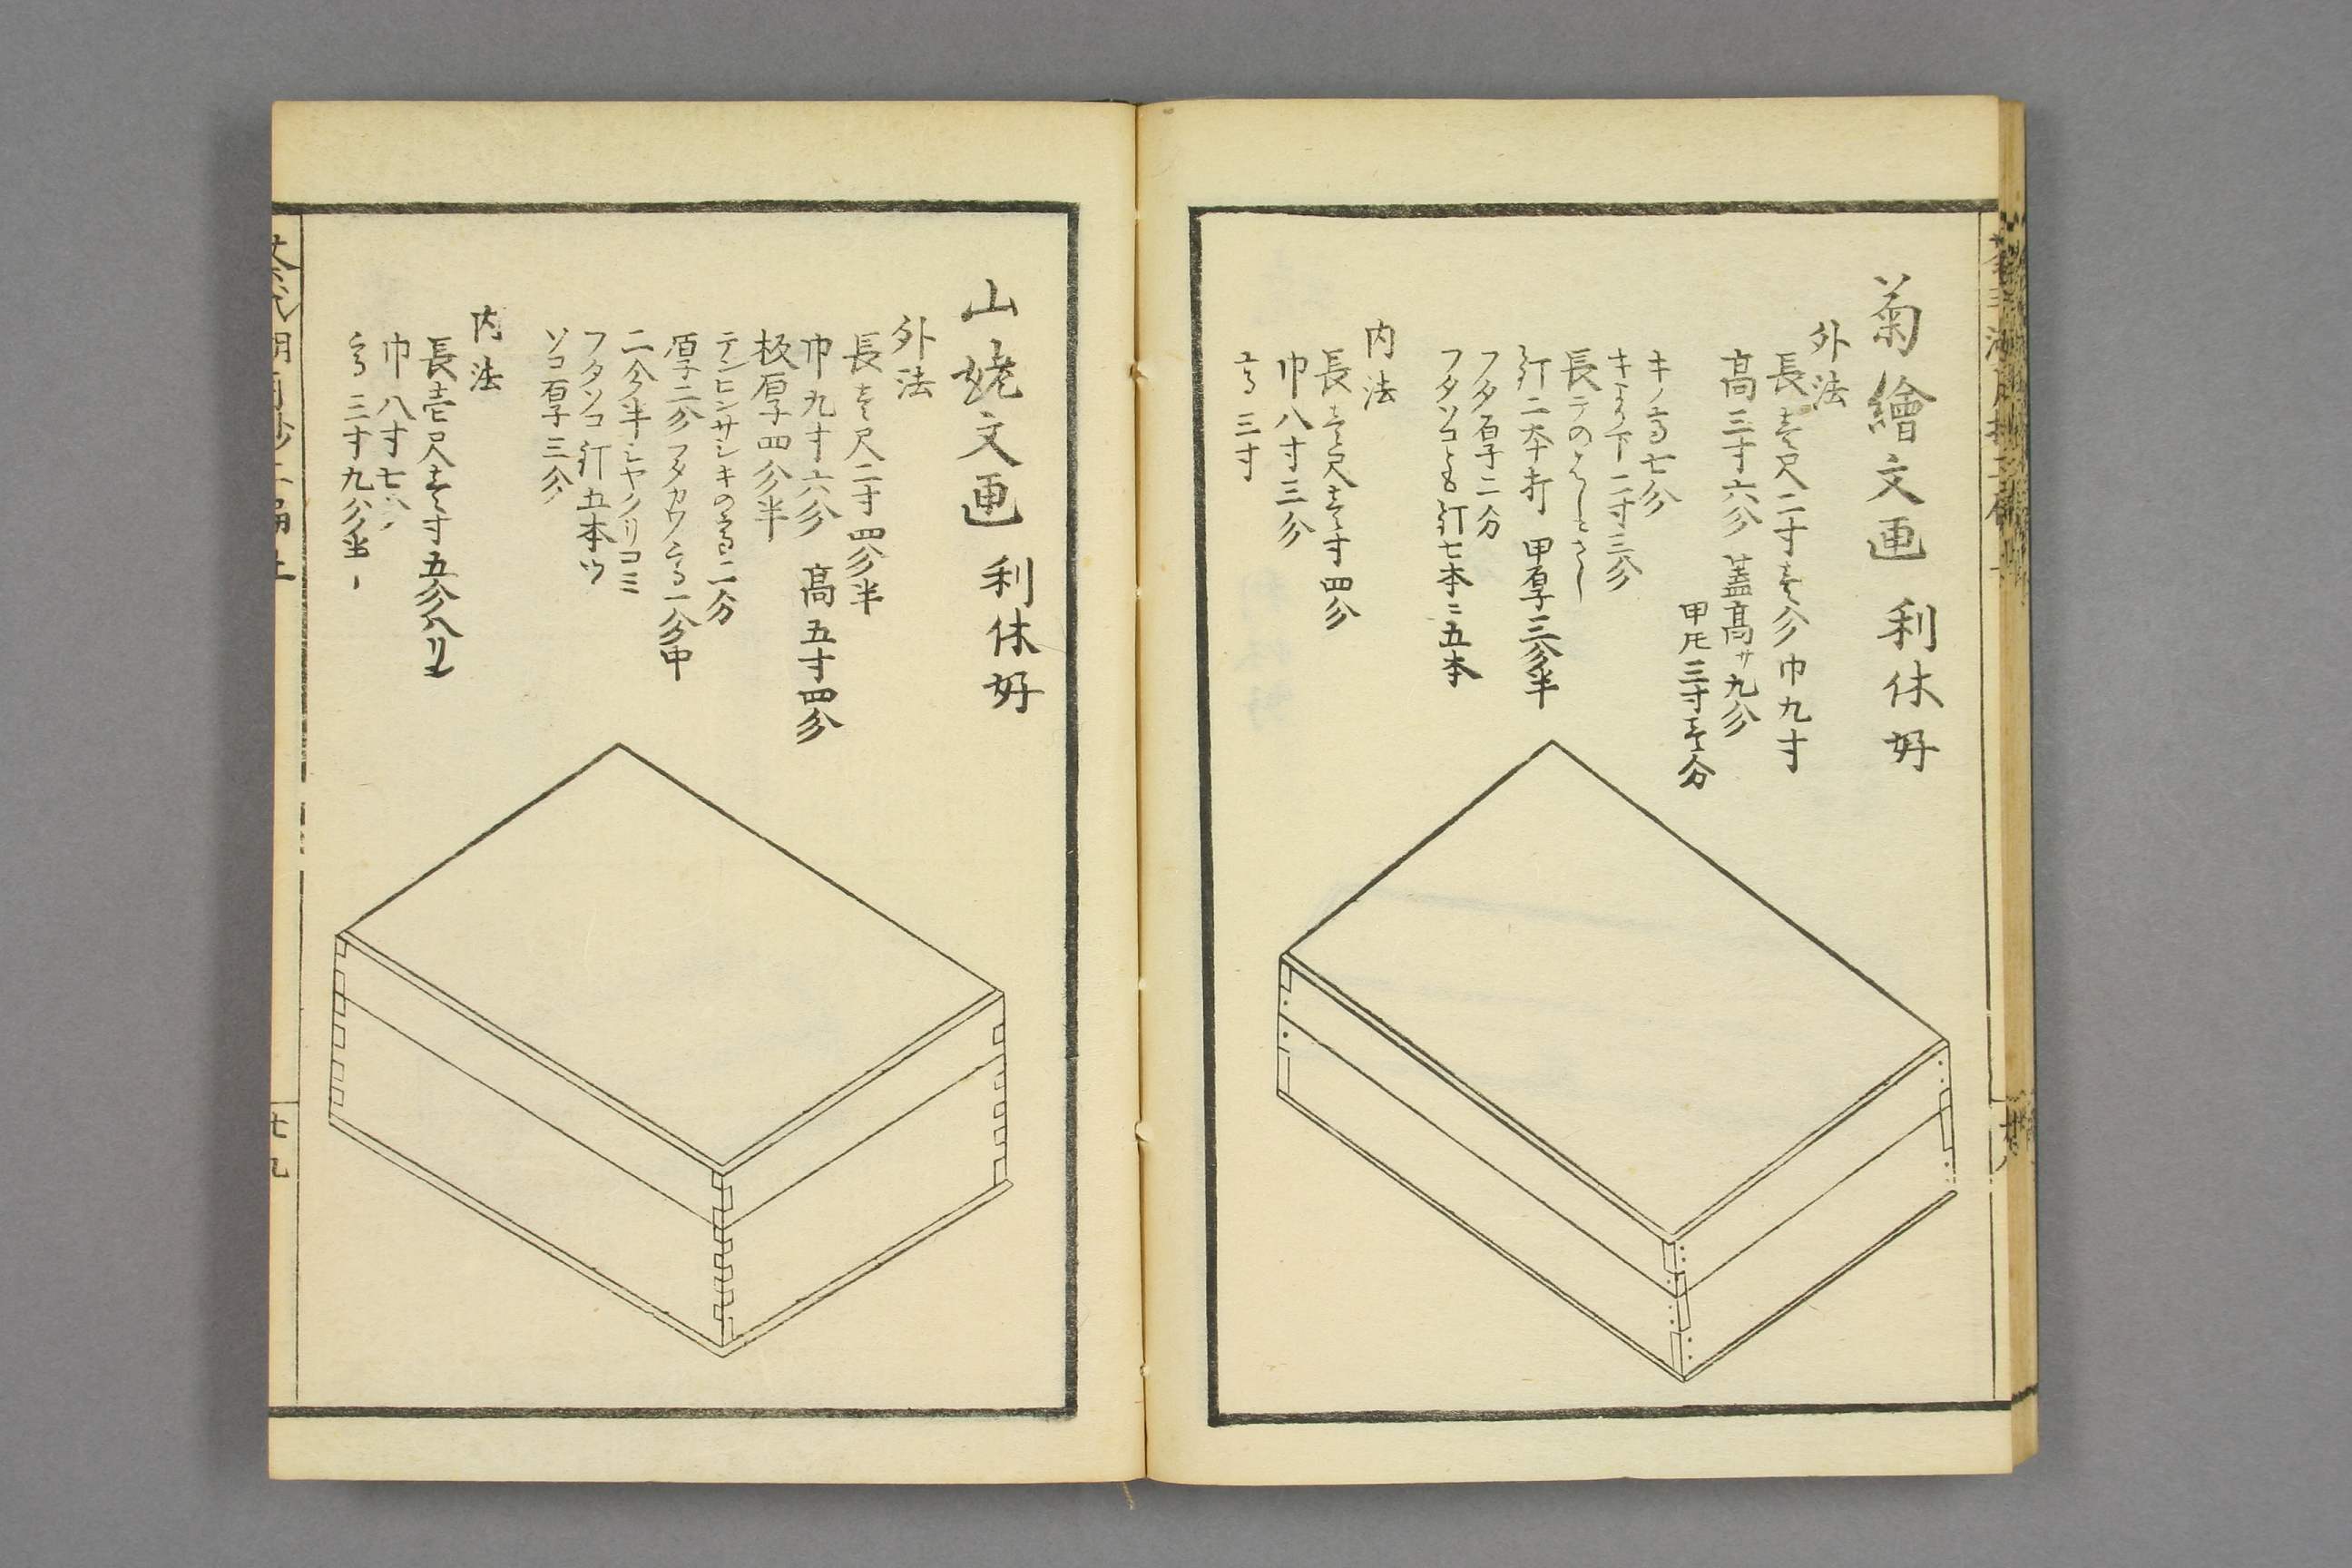 菊繪文匣 利休好
外法
長壱尺二寸壱分 巾九寸
高三寸六分 蓋高サ九分
甲圧三寸壱分
キノ高七分
キより下二寸三分
長テのはしとさし
釘二本打 甲厚三分半
フタ厚二分
フタソコとも釘七本ニ五本
内法
長壱尺壱寸四分
巾八寸三分
高三寸
山姥文匣 利休好
外法
長壱尺二寸四分半
巾九寸六分 高五寸四分
板厚四分半
テンヒンサシキの高二分
厚二分フタカウ高一分中
二分半シヤクリコミ
フタソコ釘五本ツ
ソコ厚三分
内法
長壱尺壱寸五分
巾八寸七分
高三寸九分半
廿九